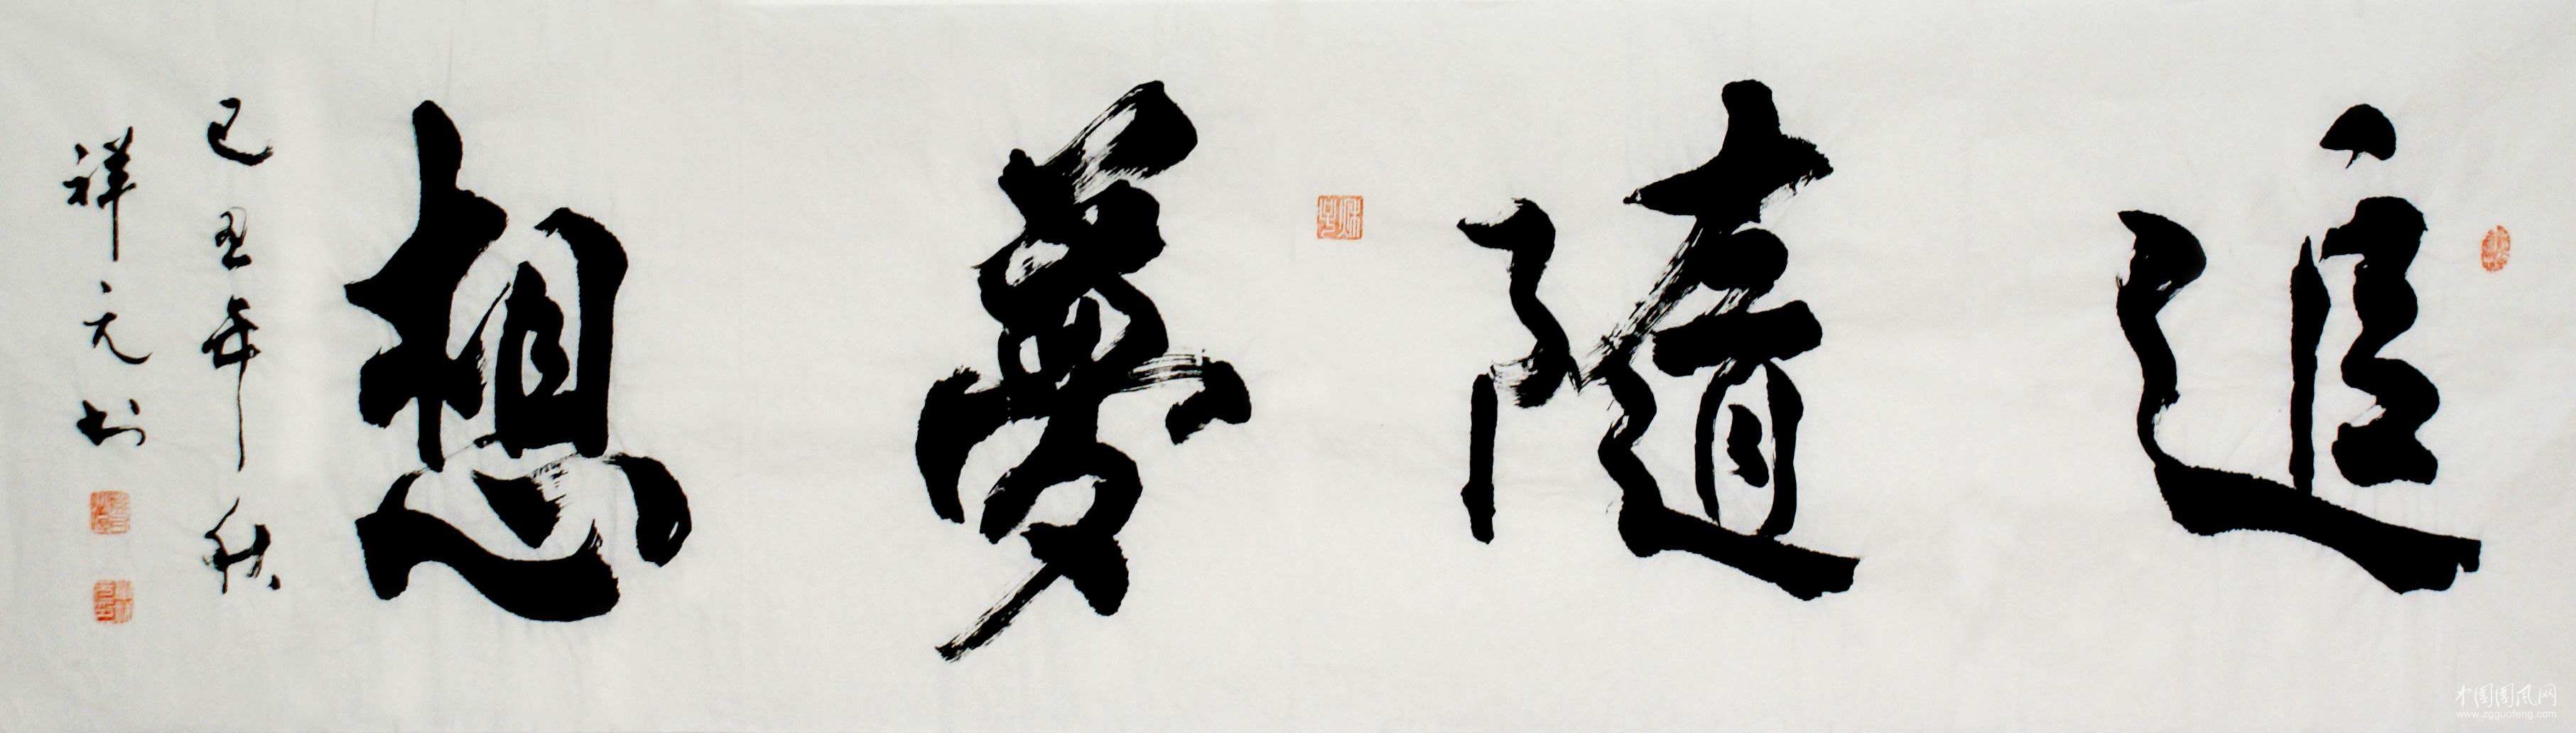 追隨夢想
己丑年秋
祥元书
中国国风网
www.zgguofeng.com